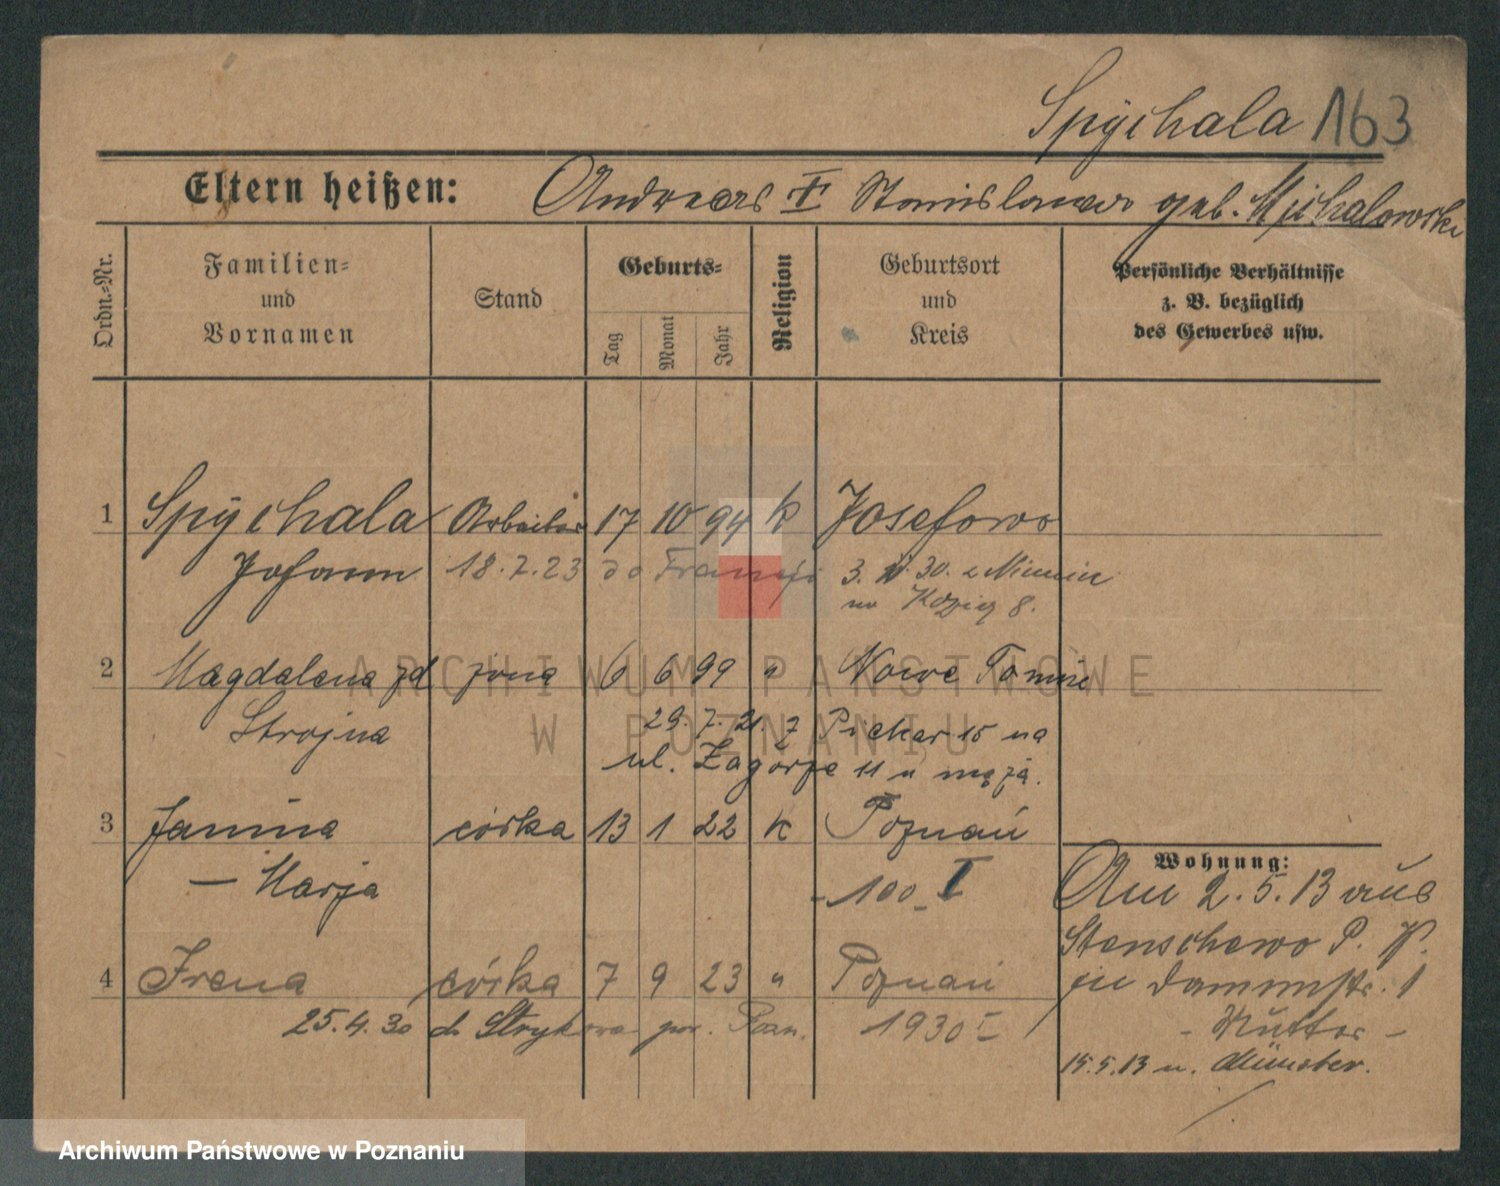 Spychala 163
Eltern heißen: Andreas † Stanislawa geb. Michalowski
Ordn.-Nr.
Familien- und Vornamen
Stand
Geburts-
Tag
Monat
Jahr
Religion
Geburtsort und Kreis
Persönliche Verhältnisse
z. B. bezüglich
des Gewerbes usw.
1 Spychala Arbeiter 17 10 94 k Josefowo
Johann 18.7.23 do Francji 3. 30. z
na 8.
2 Magdalena zd żona 6 6 99 " Nowe Tomie
Strojna 29. 7. 21. z Piekar 15 na
ul. Zagórze 11 u męża.
3 Janina córka 13 1 22 k Poznań
— Marja - 100 - I
4 Irena córka 7 9 23 " Poznań
25.4.30 do Strykowa pow. Pozn. 1930 I
Wohnung:
Am 2.5.13 aus
Stenschewo P. W.
in Dammstr. 1
- Mutter -
15.5.13 n. Münster.
ARCHIWUM PAŃSTWOWE
W POZNANIU
Archiwum Państwowe w Poznaniu